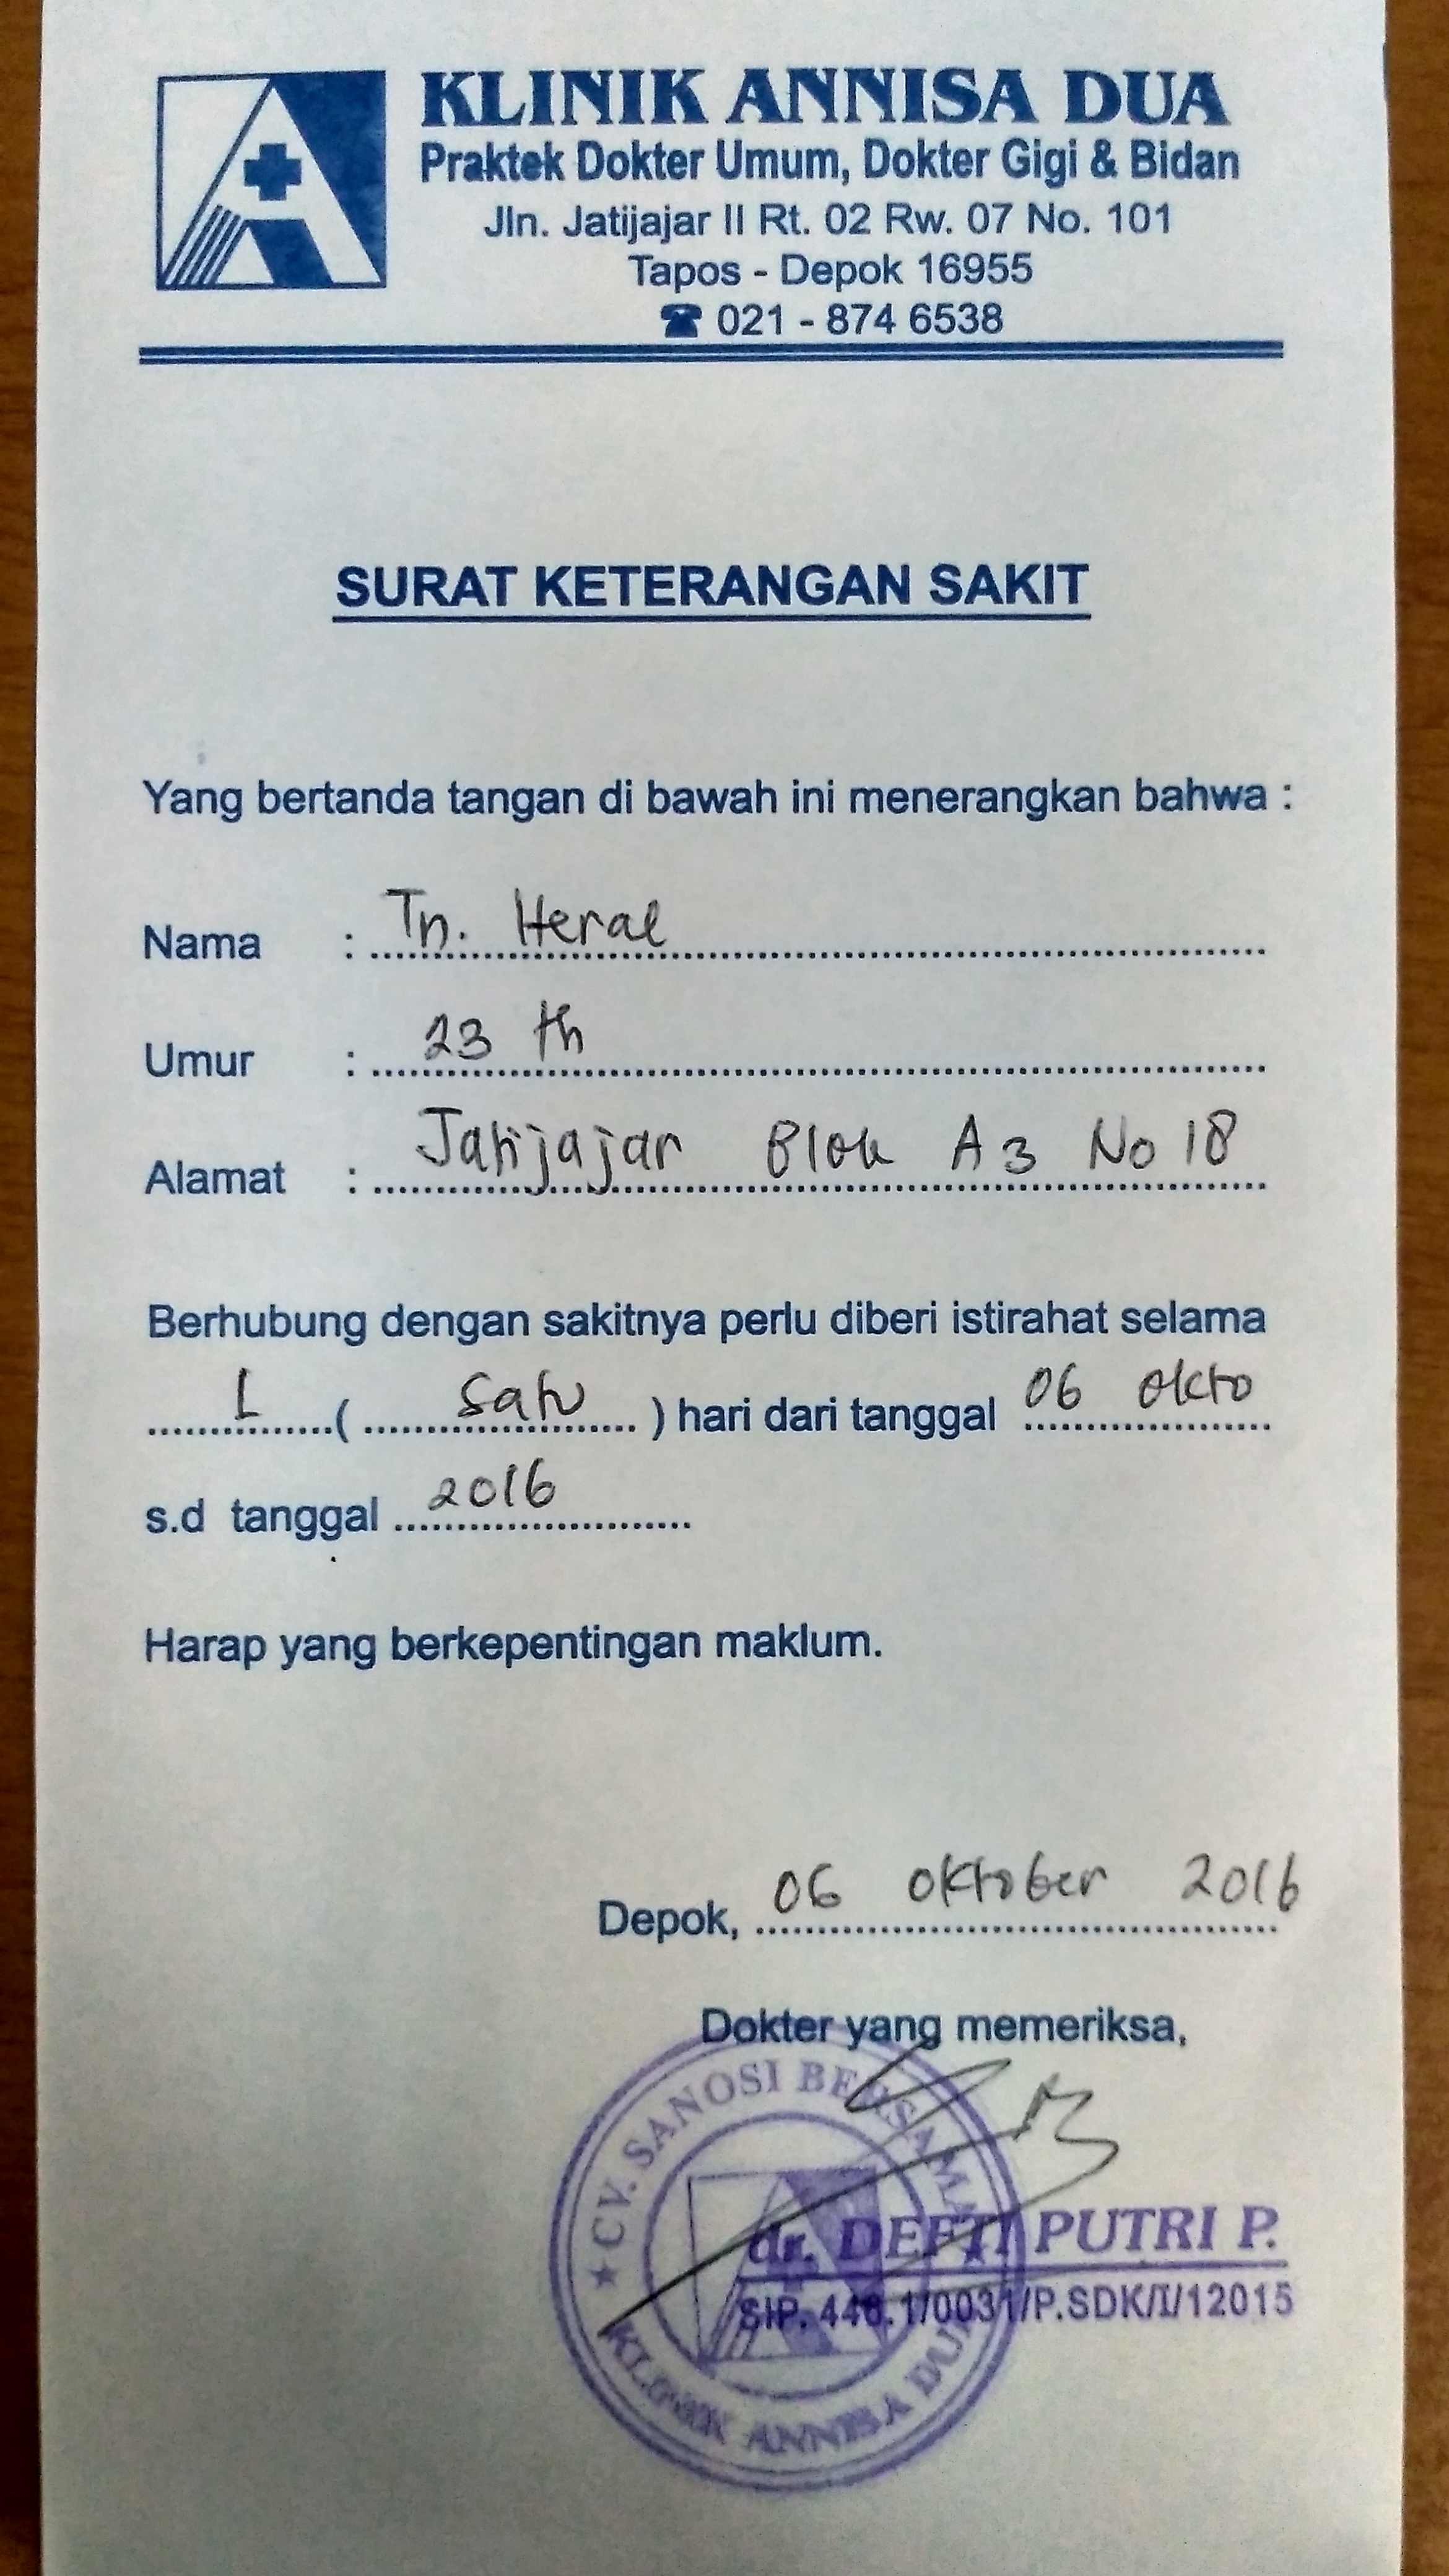 KLINIK ANNISA DUA
Praktek Dokter Umum, Dokter Gigi & Bidan
Jln. Jatijajar II Rt. 02 Rw. 07 No. 101
Tapos - Depok 16955
☎ 021 - 874 6538
SURAT KETERANGAN SAKIT
Yang bertanda tangan di bawah ini menerangkan bahwa :
Nama : Tn. Heral
Umur : 23 th
Alamat : Jatijajar Blok A3 No 18
Berhubung dengan sakitnya perlu diberi istirahat selama
1 ( Satu ) hari dari tanggal 06 Okto
s.d tanggal 2016
Harap yang berkepentingan maklum.
Depok, 06 Oktober 2016
Dokter yang memeriksa,
★ CV. SANOSI BERSAMA ★
dr. DEFTI PUTRI P.
SIP. 446.1/0031/P.SDK/I/12015
KLINIK ANNISA DUA